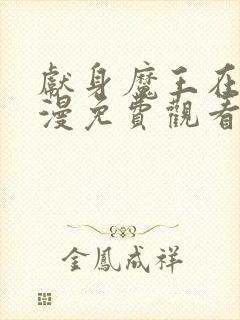 獻身魔王在
漫免費觀看
金鳳成祥